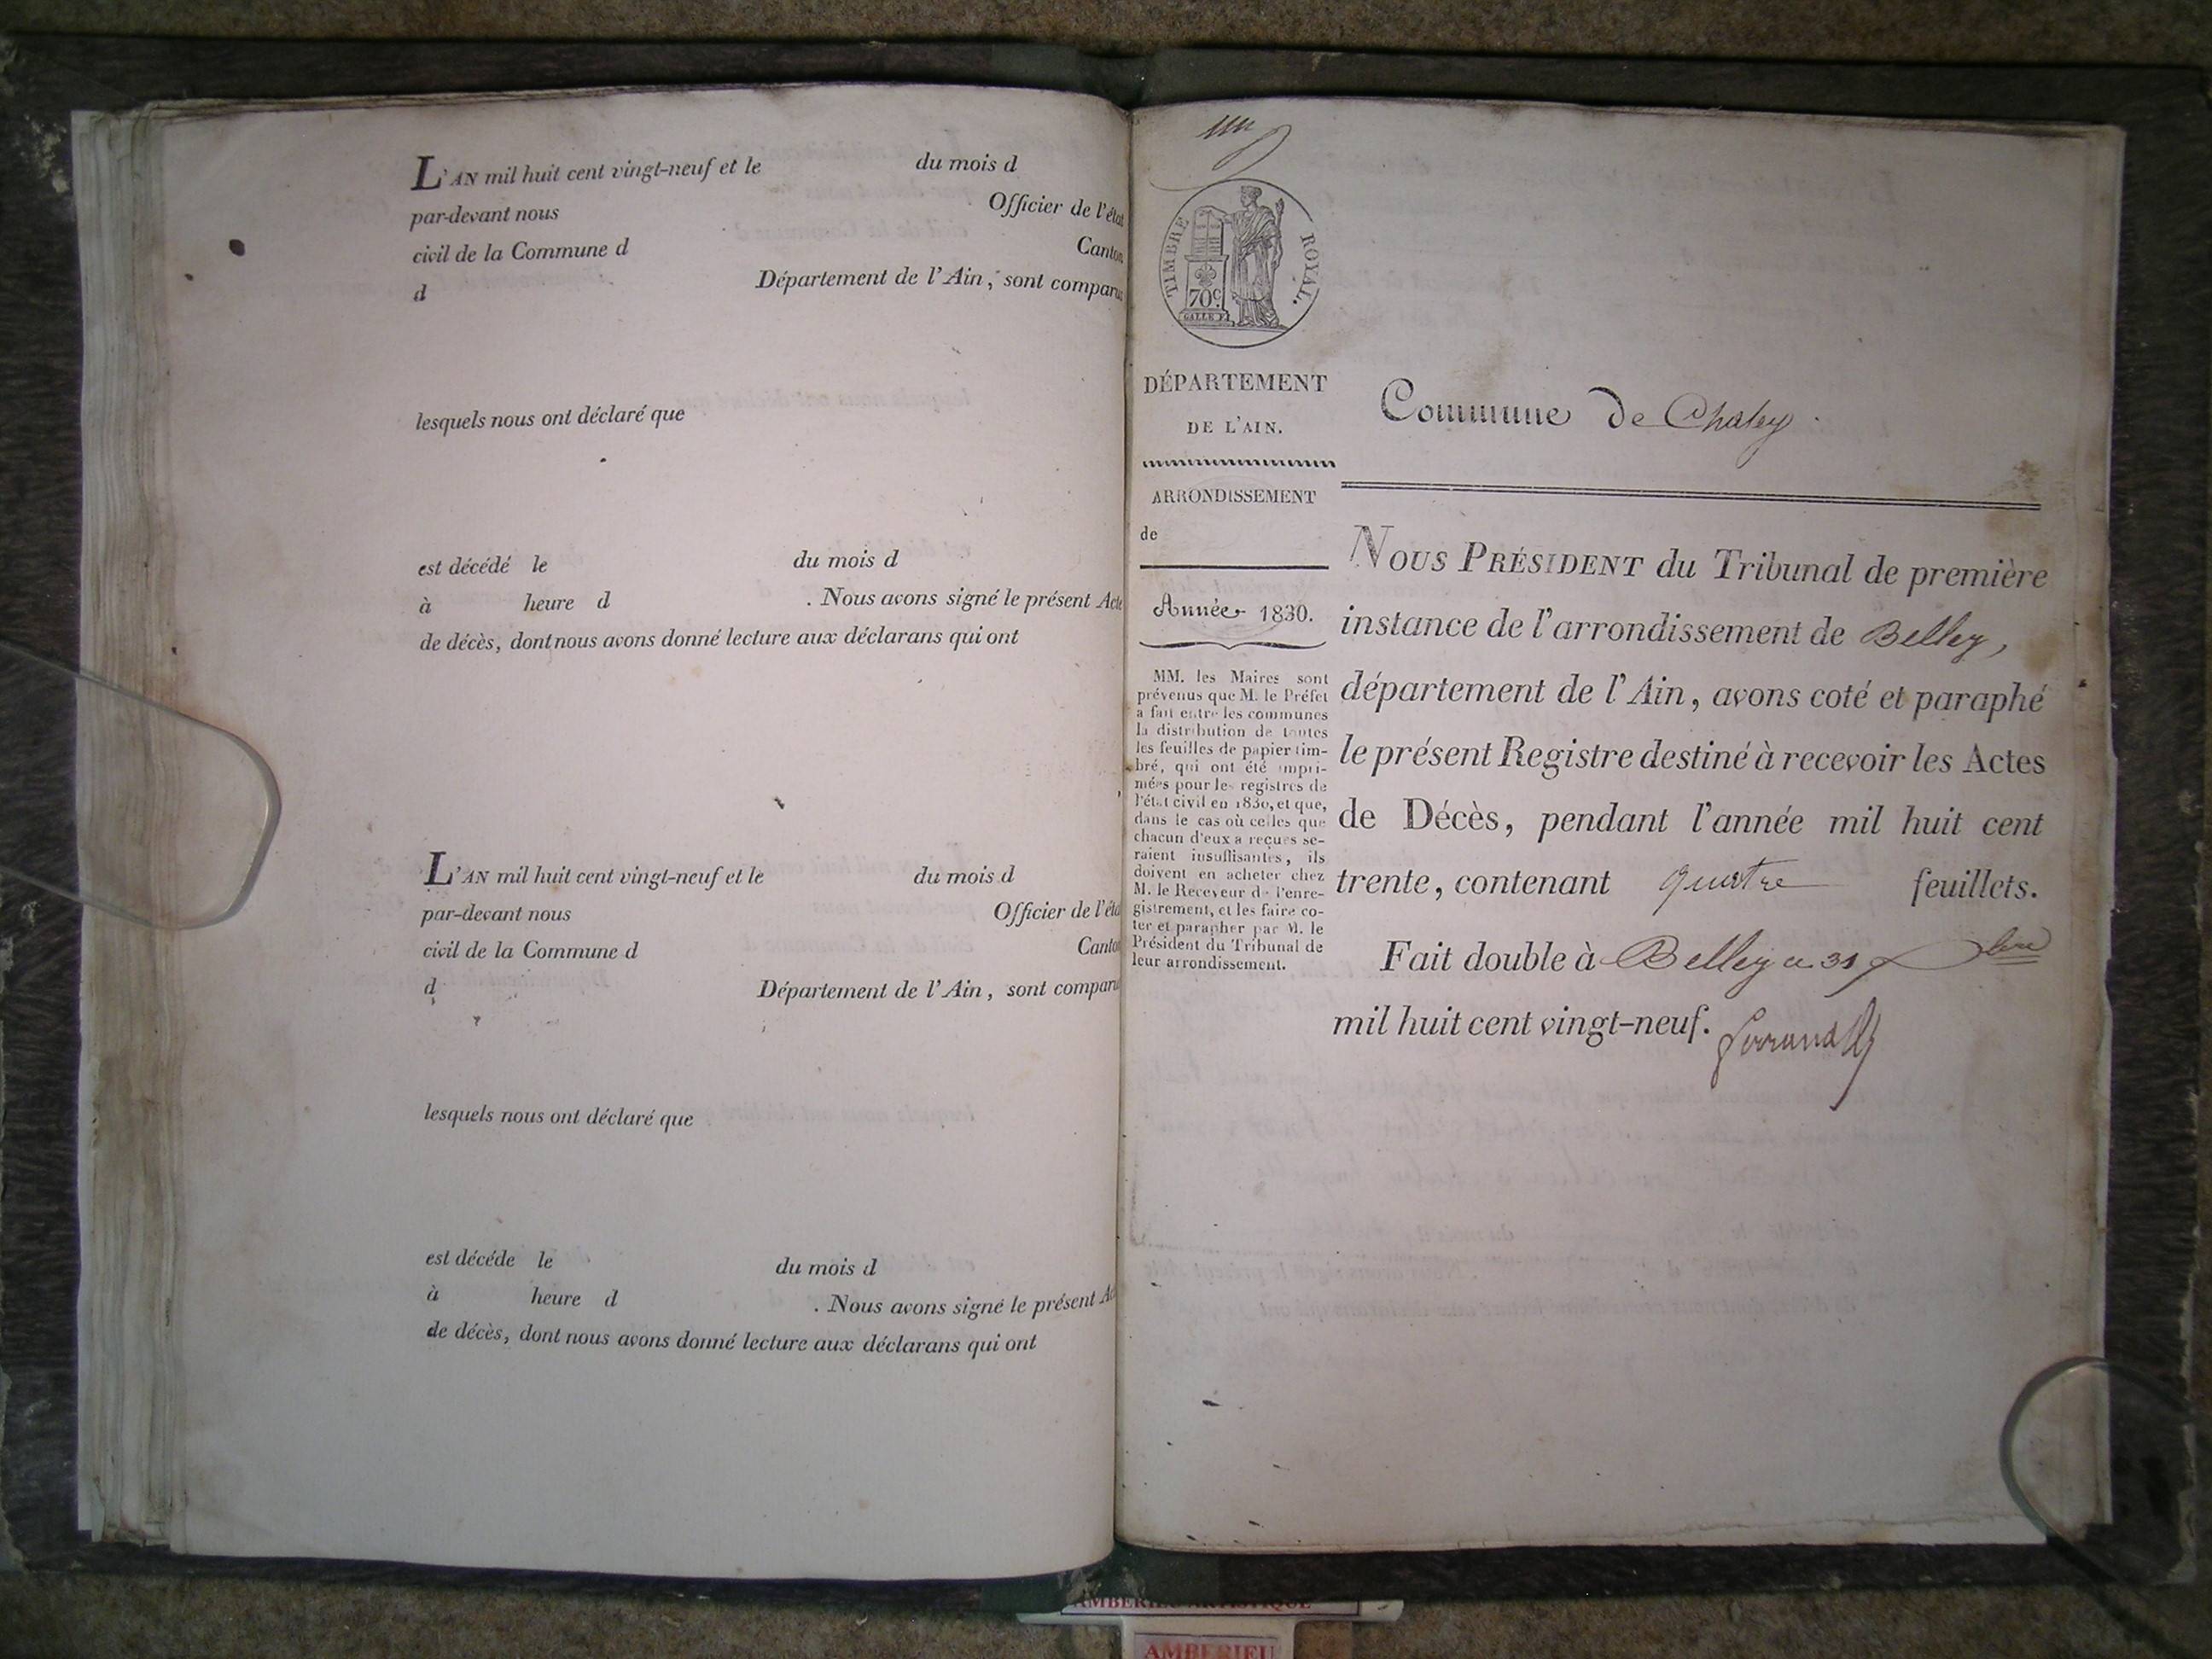 L'AN mil huit cent vingt-neuf et le du mois d
par-devant nous Officier de l'état
civil de la Commune d Canton
d Département de l'Ain, sont comparus
lesquels nous ont déclaré que
est décédé le du mois d
à heure d . Nous avons signé le présent Acte
de décès, dont nous avons donné lecture aux déclarans qui ont
L'AN mil huit cent vingt-neuf et le du mois d
par-devant nous Officier de l'éta
civil de la Commune d Canton
d Département de l'Ain, sont comparu
lesquels nous ont déclaré que
est décéde le du mois d
à heure d . Nous avons signé le présent Ac
de décès, dont nous avons donné lecture aux déclarans qui ont
un
TIMBRE ROYAL.
70c
GALLE F.
DÉPARTEMENT
DE L'AIN.
ARRONDISSEMENT
de
Année 1830.
MM. les Maires sont
prévenus que M. le Préfet
a fait entre les communes
la distribution de toutes
les feuilles de papier tim-
bré, qui ont été impri-
mées pour les registres de
l'état civil en 1830, et que,
dans le cas où celles que
chacun d'eux a reçues se-
raient insuffisantes, ils
doivent en acheter chez
M. le Receveur de l'enre-
gistrement, et les faire co-
ter et parapher par M. le
Président du Tribunal de
leur arrondissement.
Commune de Chaley
NOUS PRÉSIDENT du Tribunal de première
instance de l'arrondissement de Belley,
département de l'Ain, avons coté et paraphé
le présent Registre destiné à recevoir les Actes
de Décès, pendant l'année mil huit cent
trente, contenant quatre feuillets.
Fait double à Belley ce 31 Xbre
mil huit cent vingt-neuf.
AMBERIEU ARTISTIQUE
AMBERIEU